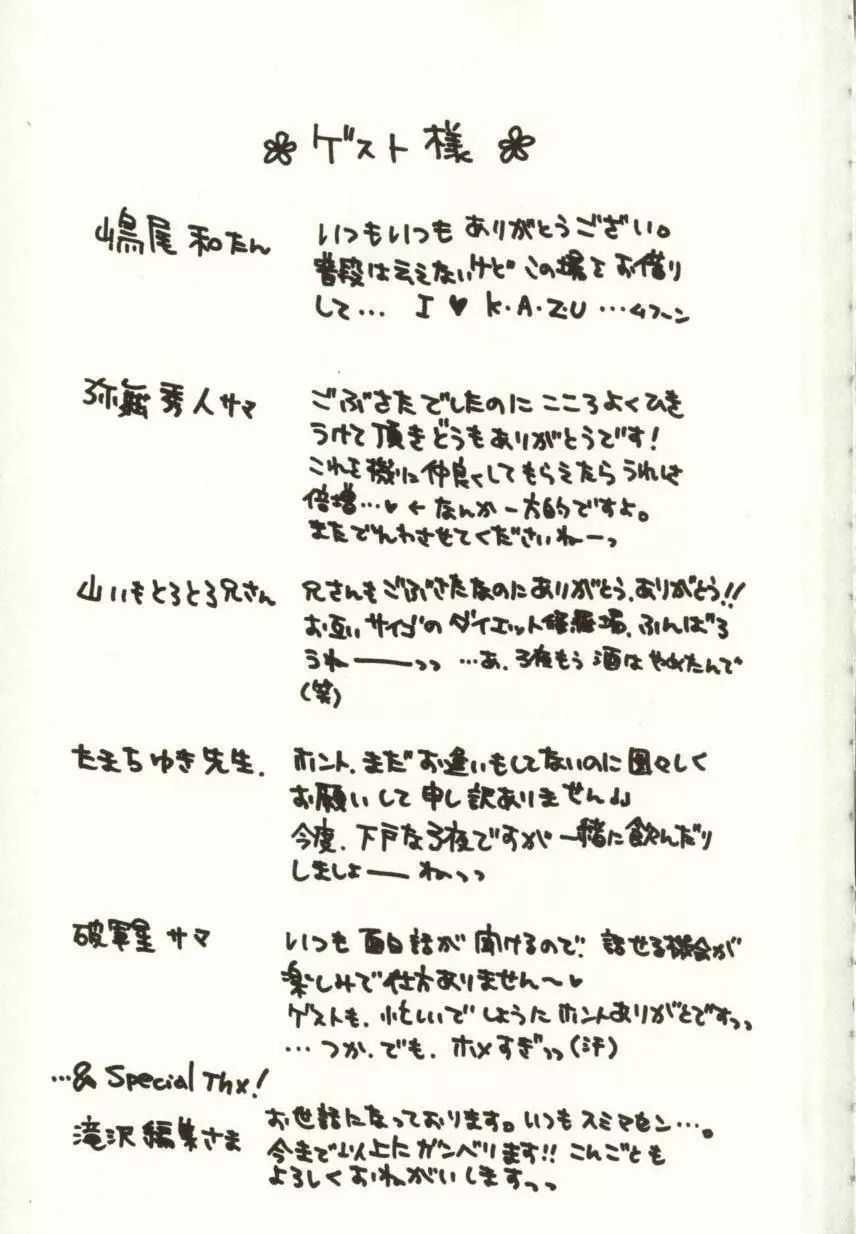 ゲスト様
嶋尾和たん
いつもいつもありがとうござい。
普段は云えないけどこの場をお借り
して… I ♥ K・A・Z・U …ムフーン
弥舞秀人サマ
ごぶさたでしたのにこころよくひき
うけて頂きどうもありがとうです!
これを機に仲良くしてもらえたらうれしさ
倍増…♥ ←なんか一方的ですよ。
またでんわさせてくださいねーっ
山いもとろとろ兄さん
兄さんもごぶさたなのにありがとう、ありがとう!!
お互いサイゴのダイエット修羅場、ふんばろ
うねーーっっ …あ、3夜もう酒はやめたんで
(笑)
たまちゆき先生.
ホント、まだお逢いもしてないのに図々しく
お願いして申し訳ありません
今度、下戸な3夜ですが一緒に飲んだり
しましょーー ねっっ
破軍星サマ
いつも面白話が聞けるので、話せる機会が
楽しみで仕方ありません〜♥
ゲストも、忙しいでしょうにホントありがとですっっ
…つか、でも、ホメすぎっっ(汗)
…& Special Thx!
滝沢編集さま
お世話になっております。いつもスミマセン…。
今まで以上にガンバります!! こんごとも
よろしくおねがいしますっっ